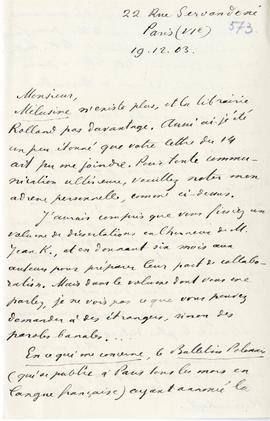 22 Rue Servandoni
Paris (VIe) 573
19.12.03.
Monsieur,
Mélusine n'existe plus, et la librairie
Rolland pas davantage. Aussi ai-je été
un peu étonné que votre lettre du 14
ait pu me joindre. Pour toute commu-
nication ultérieure, veuillez noter mon
adresse personnelle, comme ci-dessus.
J'aurais compris que vous fissiez un
volume de dissertations en l'honneur de M.
Jean K., et en donnant six mois aux
auteurs pour préparer leur part de collabo-
ration. Mais dans le volume dont vous me
parlez, je ne vois pas ce que vous pouvez
demander à des étrangers, sinon des
paroles banales....
En ce qui me concerne, le Bulletin Polonais
(qui se publie à Paris tous les mois en
langue française) ayant annoncé la